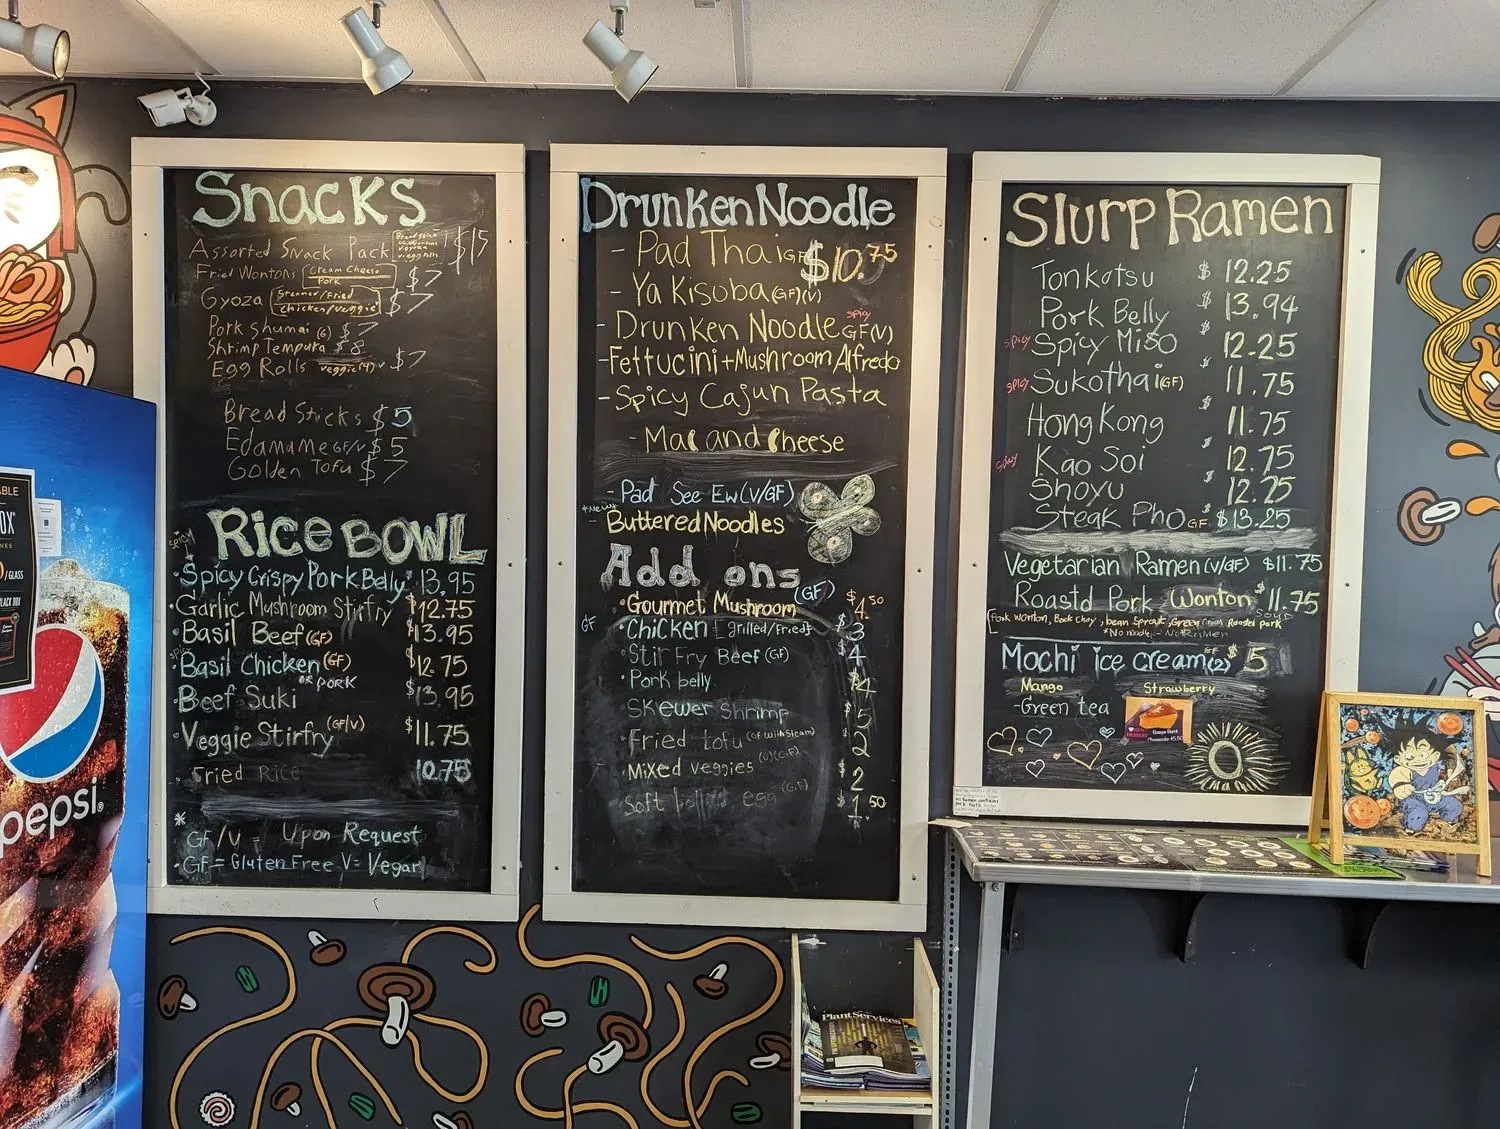 Snacks
Assorted Snack Pack $15
Fried Wontons Cream Cheese $7
Pork
Gyoza Steamed/Fried $7
Chicken/Veggie
Pork Shumai (6) $7
Shrimp Tempura $8
Egg Rolls veggie(4) $7
Bread Sticks $5
Edamame GF/V $5
Golden Tofu $7
Rice BOWL
spicy
Spicy Crispy Pork Belly 13.95
Garlic Mushroom Stirfry $12.75
Basil Beef (GF) $13.95
Basil Chicken (GF) $12.75
or PORK
Beef Suki $13.95
Veggie Stirfry (GF/V) $11.75
Fried Rice 10.75
* GF/V = Upon Request
GF = Gluten Free V = Vegan
Drunken Noodle
- Pad Thai GF $10.75
- Yakisoba (GF)(V)
- Drunken Noodle spicy GF(V)
- Fettucini + Mushroom Alfredo
- Spicy Cajun Pasta
- Mac and Cheese
- Pad See Ew (V/GF)
*New
- Buttered Noodles
Add ons
• Gourmet Mushroom (GF) $4.50
GF • Chicken [grilled/Fried] $3
• Stir Fry Beef (GF) $4
• Pork belly $4
Skewer Shrimp $5
Fried tofu (or with Steam) $2
Mixed veggies (V)(GF) 2
Soft egg (GF) $1.50
Slurp Ramen
Tonkotsu $12.25
Pork Belly $13.94
spicy Spicy Miso $12.25
spicy Sukothai (GF) $11.75
Hong Kong $11.75
spicy Kao Soi $12.75
Shoyu $12.25
Steak Pho GF $13.25
Vegetarian Ramen (V/GF) $11.75
Roastd Pork Wonton Soup $11.75
[Pork wonton, Bock Choy, bean Sprout, Green Onion, Roasted pork
*No noodle - Not Ramen
Mochi ice cream (2) GF $5
Mango Strawberry
- Green tea
Cheesecake $5.50
pepsi
/GLASS
PlantServices